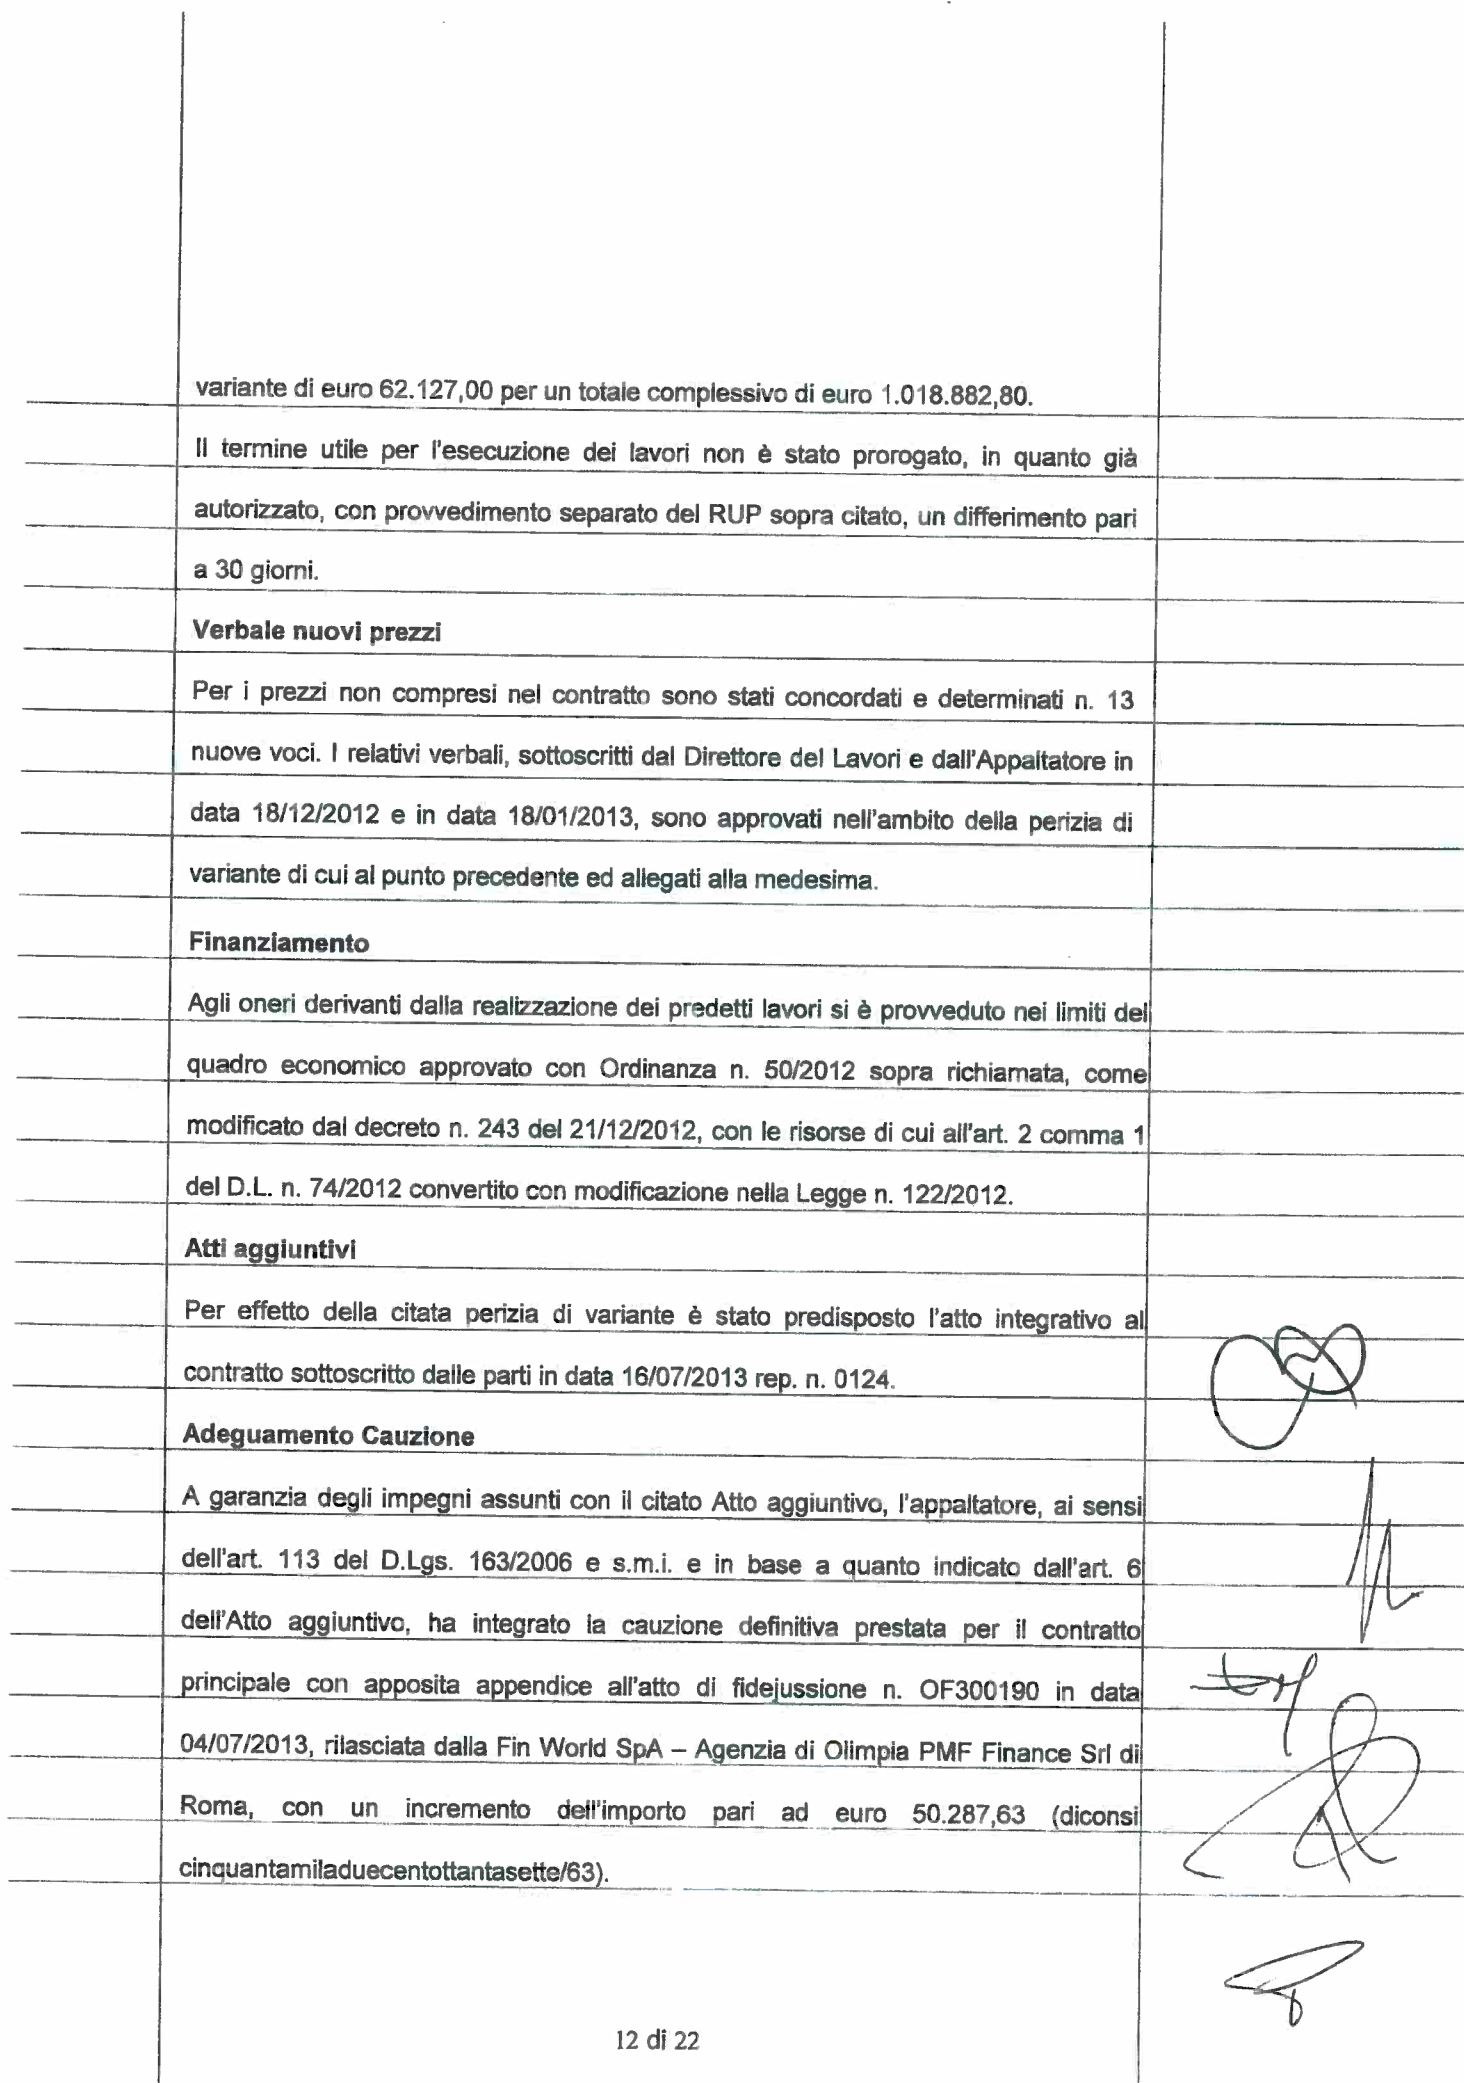 variante di euro 62.127,00 per un totale complessivo di euro 1.018.882,80.
Il termine utile per l'esecuzione dei lavori non è stato prorogato, in quanto già
autorizzato, con provvedimento separato del RUP sopra citato, un differimento pari
a 30 giorni.
Verbale nuovi prezzi
Per i prezzi non compresi nel contratto sono stati concordati e determinati n. 13
nuove voci. I relativi verbali, sottoscritti dal Direttore del Lavori e dall'Appaltatore in
data 18/12/2012 e in data 18/01/2013, sono approvati nell'ambito della perizia di
variante di cui al punto precedente ed allegati alla medesima.
Finanziamento
Agli oneri derivanti dalla realizzazione dei predetti lavori si è provveduto nei limiti del
quadro economico approvato con Ordinanza n. 50/2012 sopra richiamata, come
modificato dal decreto n. 243 del 21/12/2012, con le risorse di cui all'art. 2 comma 1
del D.L. n. 74/2012 convertito con modificazione nella Legge n. 122/2012.
Atti aggiuntivi
Per effetto della citata perizia di variante è stato predisposto l'atto integrativo al
contratto sottoscritto dalle parti in data 16/07/2013 rep. n. 0124.
Adeguamento Cauzione
A garanzia degli impegni assunti con il citato Atto aggiuntivo, l'appaltatore, ai sensi
dell'art. 113 del D.Lgs. 163/2006 e s.m.i. e in base a quanto indicato dall'art. 6
dell'Atto aggiuntivo, ha integrato la cauzione definitiva prestata per il contratto
principale con apposita appendice all'atto di fidejussione n. OF300190 in data
04/07/2013, rilasciata dalla Fin World SpA – Agenzia di Olimpia PMF Finance Srl di
Roma, con un incremento dell'importo pari ad euro 50.287,63 (diconsi
cinquantamiladuecentottantasette/63).
12 di 22